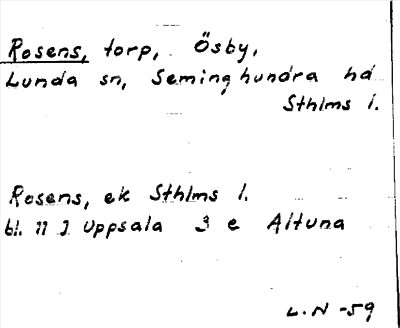 Rosens, torp, Ösby,
Lunda sn, Seminghundra hd
Sthlms l.
Rosens, ek Sthlms l.
bl. 11 J Uppsala 3 e Altuna
L.N -59